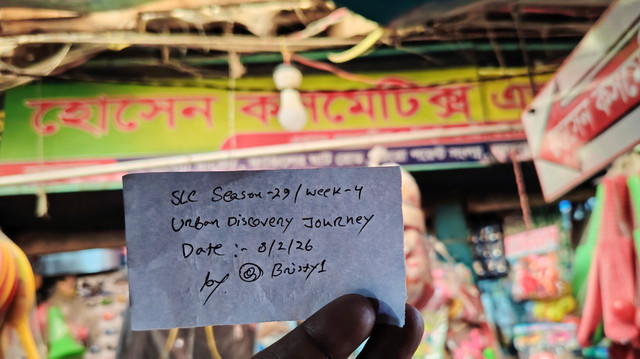 হোসেন কসমেটিক্স এ
SLC Season-29/week-4
Urban Discovery Journey
Date :- 8/2/26
by @ Bristy1